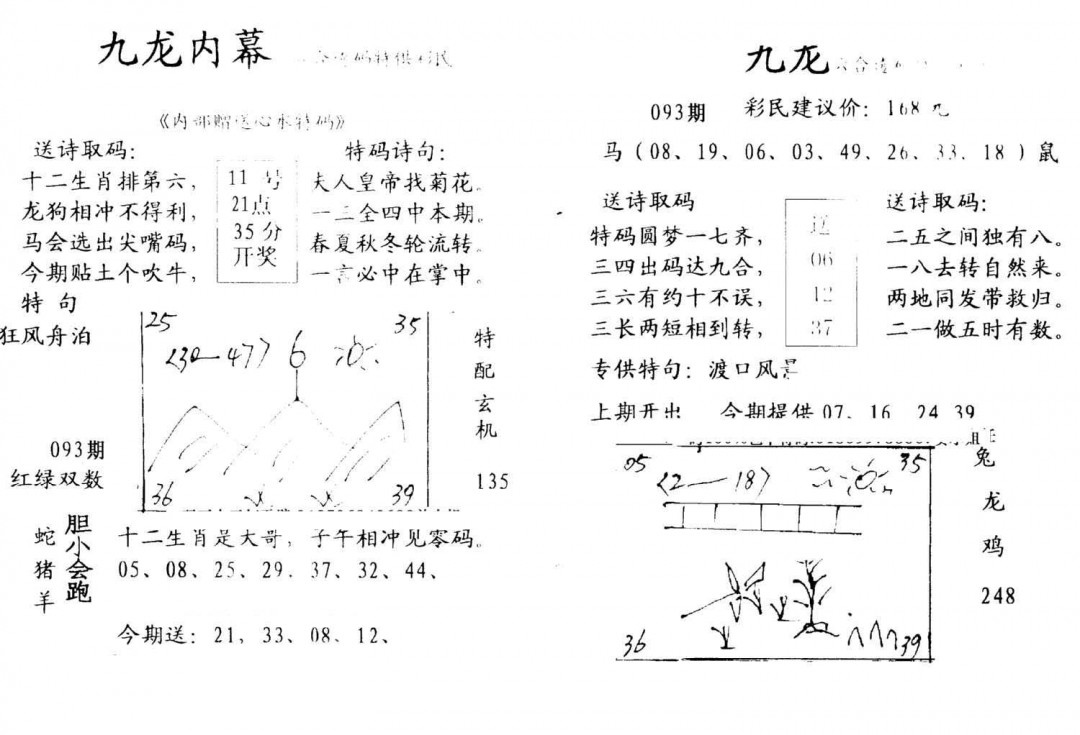 九龙内幕
《内部赠送心水特码》
送诗取码：
十二生肖排第六，
龙狗相冲不得利，
马会选出尖嘴码，
今期贴土个吹牛，
11 号
21点
35 分
开奖
特码诗句：
夫人皇帝找菊花。
一三全四中本期。
春夏秋冬轮流转。
一言必中在掌中。
特 句
狂风舟泊
093期
红绿双数
25
35
230—477 6
36
39
特
配
玄
机
135
蛇
猪
羊
胆小会跑
十二生肖是大哥，子午相冲见零码。
05、08、25、29. 37、32、44、
今期送：21，33、08、12、
九龙
093期 彩民建议价：168 元
马（08、19、06、03、49、26、33. 18 ）鼠
送诗取码
特码圆梦一七齐，
三四出码达九合，
三六有约十不误，
三长两短相到转，
送
06
12
37
送诗取码：
二五之间独有八。
一八去转自然来。
两地同发带救归。
二一做五时有数。
专供特句：渡口风景
上期开出 今期提供 07、16 24 39
05
35
22—187
36
39
兔
龙
鸡
248